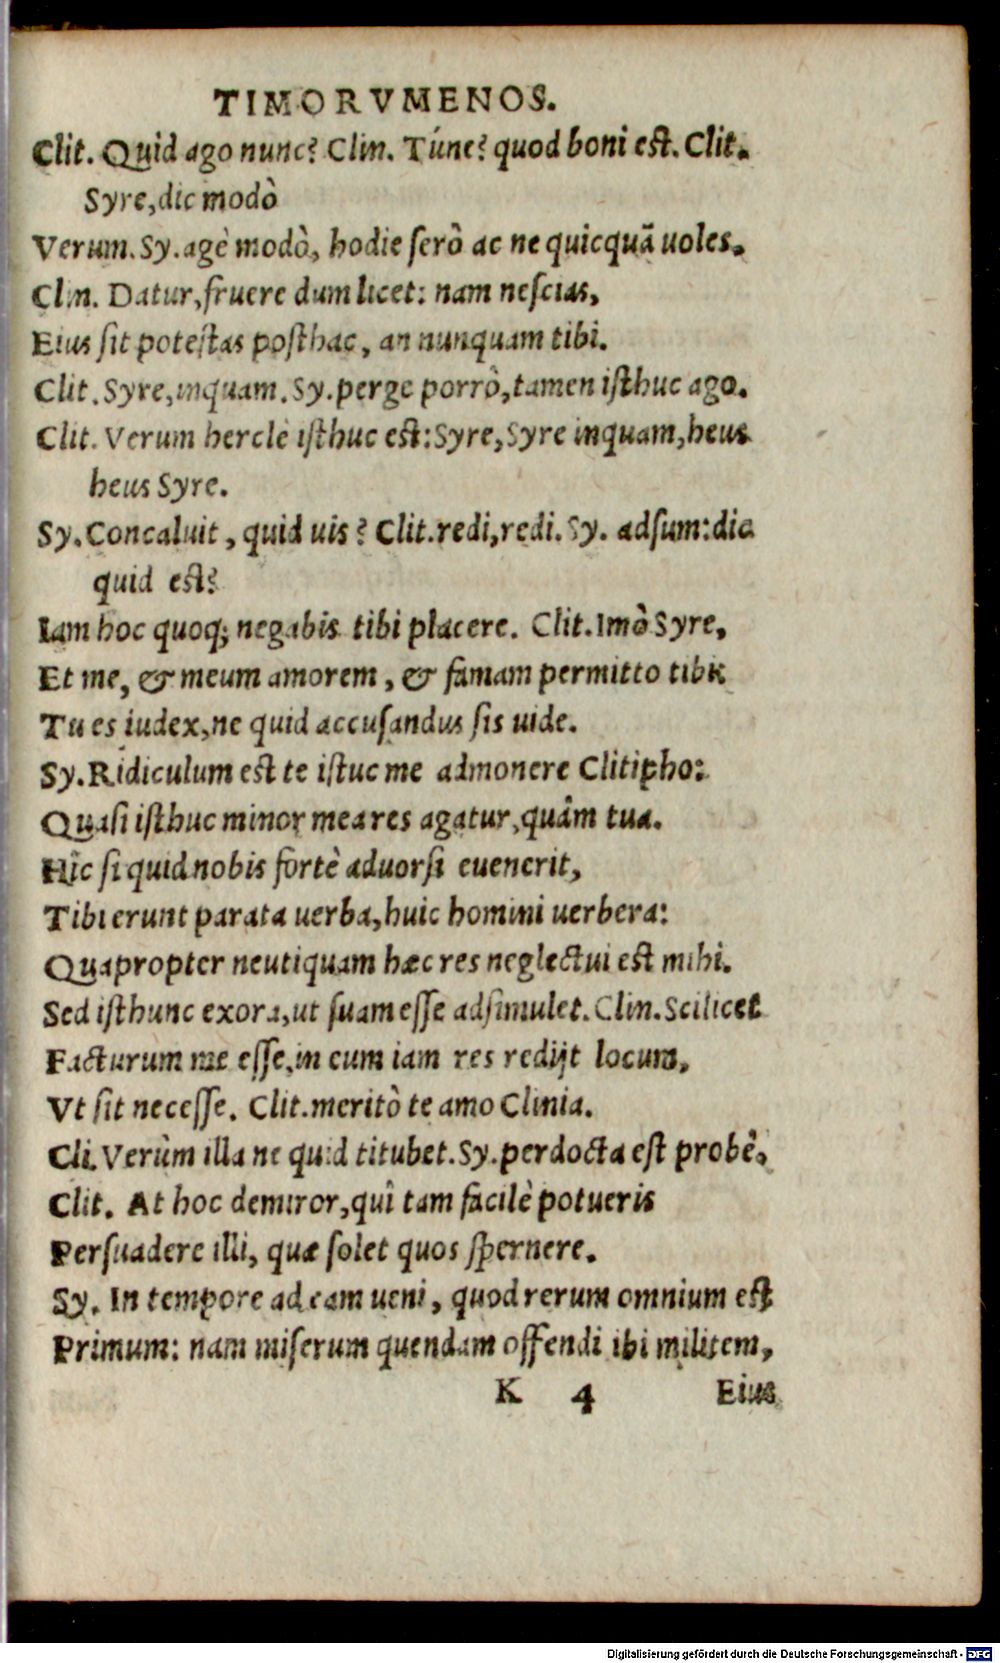 TIMORVMENOS.
Clit. Quid ago nunc? Clin. Túne? quod boni est. Clit.
Syre, dic modò
Verum. Sy. agè modò, hodie serò ac ne quicquã uoles.
Clin. Datur, fruere dum licet: nam nescias,
Eius sit potestas posthac, an nunquam tibi.
Clit. Syre, inquam. Sy. perge porrò, tamen isthuc ago.
Clit. Verum hercle isthuc est: Syre, Syre inquam, heus
heus Syre.
Sy. Concaluit, quid uis? Clit. redi, redi. Sy. adsum: dic
quid est?
Iam hoc quoq; negabis tibi placere. Clit. Imò Syre,
Et me, & meum amorem, & famam permitto tibi.
Tu es iudex, ne quid accusandus sis uide.
Sy. Ridiculum est te istuc me admonere Clitipho:
Quasi isthuc minor mea res agatur, quâm tua.
Hîc si quid nobis fortè aduorsi euenerit,
Tibi erunt parata uerba, huic homini uerbera:
Quapropter neutiquam hæc res neglectui est mihi.
Sed isthunc exora, ut suam esse adsimulet. Clin. Scilicet
Facturum me esse, in eum iam res redijt locum,
Vt sit necesse. Clit. meritò te amo Clinia.
Cli. Verùm illa ne quid titubet. Sy. perdocta est probè.
Clit. At hoc demiror, quî tam facilè potueris
Persuadere illi, quæ solet quos spernere.
Sy. In tempore ad eam ueni, quod rerum omnium est
Primum: nam miserum quendam offendi ibi militem,
K 4 Eius
Digitalisierung gefördert durch die Deutsche Forschungsgemeinschaft - DFG